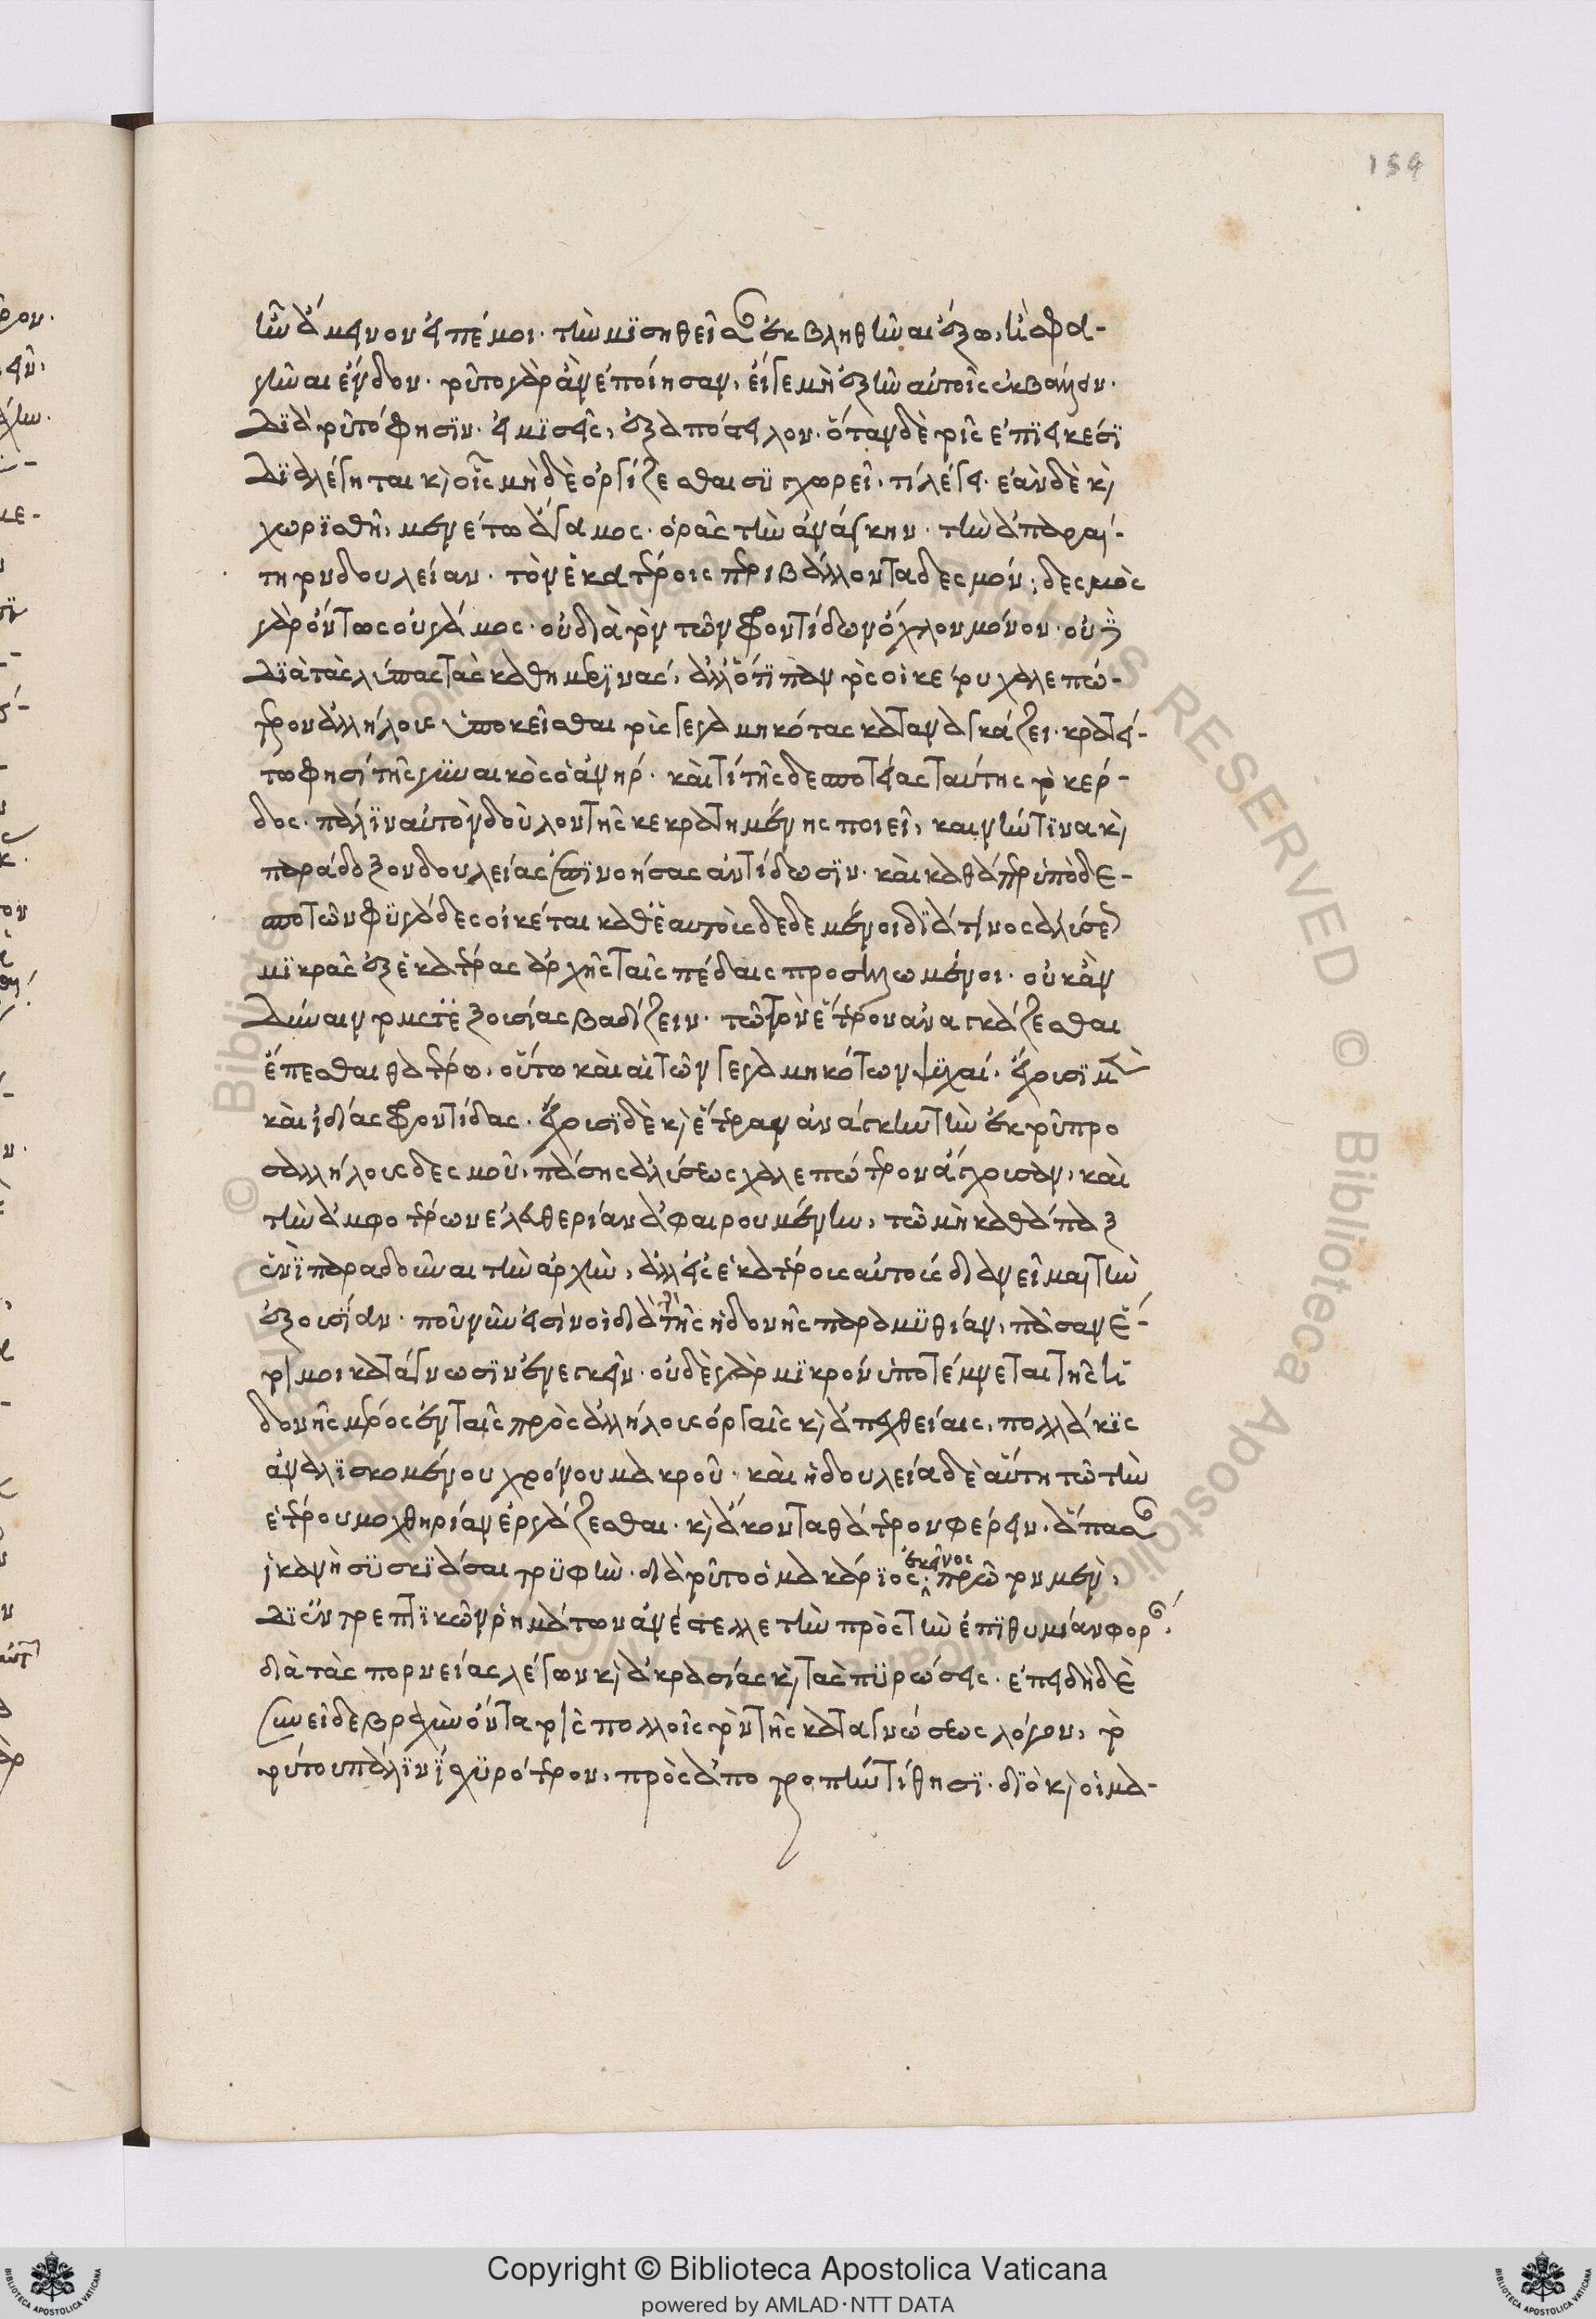 ἦν ἄμεινον εἰπέ μοι. τὴν μισηθεῖσαν ἐκβληθῆναι ἔξω, ἢ σφα-
γῆναι ἔνδον. τοῦτο γὰρ ἂν ἐποίησαν, εἴγε μὴ ἐξῆν αὐτοῖς ἐκβαλεῖν.
Διὰ τοῦτό φησϊν. εἰ μισεῖς, ἐξαπόστειλον. ὅταν δὲ τοῖς ἐπϊεικέσϊ
Διαλέγηται κ(αὶ) οἷς μὴ δὲ ὀργίζεσθαι συγχωρεῖ, τί λέγει. ἐὰν δὲ κ(αὶ)
χωρϊσθῆ, μενέτω ἄγαμος. ὁρᾶς τὴν ἀνάγκην. τὴν ἀπαραί-
τητον δουλείαν. τὸν ἑκατέροις περιβάλλοντα δεσμόν; δεσμὸς
γὰρ ὄντως ὁ γάμος. οὐ διὰ τὸν τῶν φροντίδων ὄχλον μόνον. οὐδὲ
Διὰ τὰς λύπας τὰς καθημερϊνάς, ἀλλ' ὅτϊ παντὸς οἰκέτου χαλεπώ-
τερον ἀλλήλοις ὑποκεῖσθαι τοὺς γεγαμηκότας καταναγκάζει. κρατεί-
τω φησὶ τῆς γϋναικὸς ὁ ἀνήρ. καὶ τί τῆς δεσποτείας ταύτης τὸ κέρ-
δος. πάλϊν αὐτὸν δοῦλον τῆς κεκρατημένης ποιεῖ, καινήν τϊνα κ(αὶ)
παράδοξον δουλείας ἐπϊνοήσας ἀντίδωσϊν. καὶ καθάπερ ὑπὸ δε-
σποτῶν φϋγάδες οἰκέται καθ' ἑαυτοὺς δεδεμένοι διά τινος ἁλύσεως
μϊκρᾶς ἐξ ἑκατέρας ἀρχῆς ταῖς πέδαις προσηλωμένοι. οὐκ ἂν
Δύναιντο μετ' ἐξουσίας βαδίζειν. τῶ τὸν ἕτερον ἀναγκάζεσθαι
ἕπεσθαι θατέρω. οὕτω καὶ αἱ τῶν γεγαμηκότων ψϋχαί. ἔχουσϊ μὲν
καὶ ἰδίας φροντίδας. ἔχουσϊ δὲ κ(αὶ) ἑτέραν ἀνάγκην τὴν ἐκ τοῦ πρὸ
ς ἀλλήλους δεσμοῦ, πάσης ἁλύσεως χαλεπώτερον ἄγχουσαν, καὶ
τὴν ἀμφοτέρων ἐλευθερίαν ἀφαιρουμένην, τῶ μὴ καθάπαξ
ἑνϊ παραδοῦναι τὴν ἀρχὴν, ἀλλ' εἰς ἑκατέρους αὐτοὺς διανεῖμαι τὴν
ἐξουσϊαν. ποῦ νῦν εἰσὶν οἱ διὰ τὴν τῆς ἡδονῆς παραμϋθίαν, πᾶσαν ἕ-
τοιμοι κατάγνωσϊν ἐνεγκεῖν. οὐδὲ γὰρ μϊκρὸν ὑποτέμνεται τῆς ἡ
δονῆς μέρος ἐν ταῖς πρὸς ἀλλήλους ὀργαῖς κ(αὶ) ἀπεχθείαις, πολλάκϊς
ἀναλϊσκομένου χρόνου μακροῦ. καὶ ἡ δουλεία δὲ αὕτη τῶ τὴν
ἑτέρου μοχθηρίαν ἐργάζεσθαι. κ(αὶ) ἄκοντα θάτερον φέρειν. ἅπασαν
ἱκανὴ συσκϊάσαι τρϋφὴν. διὰ τοῦτο ὁ μακάρϊος ἐκεῖνος πρῶτον μὲν,
Διεντρεπτϊκῶν ῥημάτων ἀνέστελλε τὴν πρὸς τὴν ἐπϊθυμίαν φορὰν,
διὰ τὰς πορνείας λέγων κ(αὶ) ἀκρασίας κ(αὶ) τὰς πϋρώσεις. ἐπειδὴ δὲ
συνεῖδε βραχὺν ὄντα τοῖς πολλοῖς τὸν τῆς καταγνώσεως λόγον, τὸ
τούτου πάλϊν ἰσχϋρότερον, πρὸς ἀποτροπὴν τίθησϊ. διὸ κ(αὶ) οἱ μα-
154